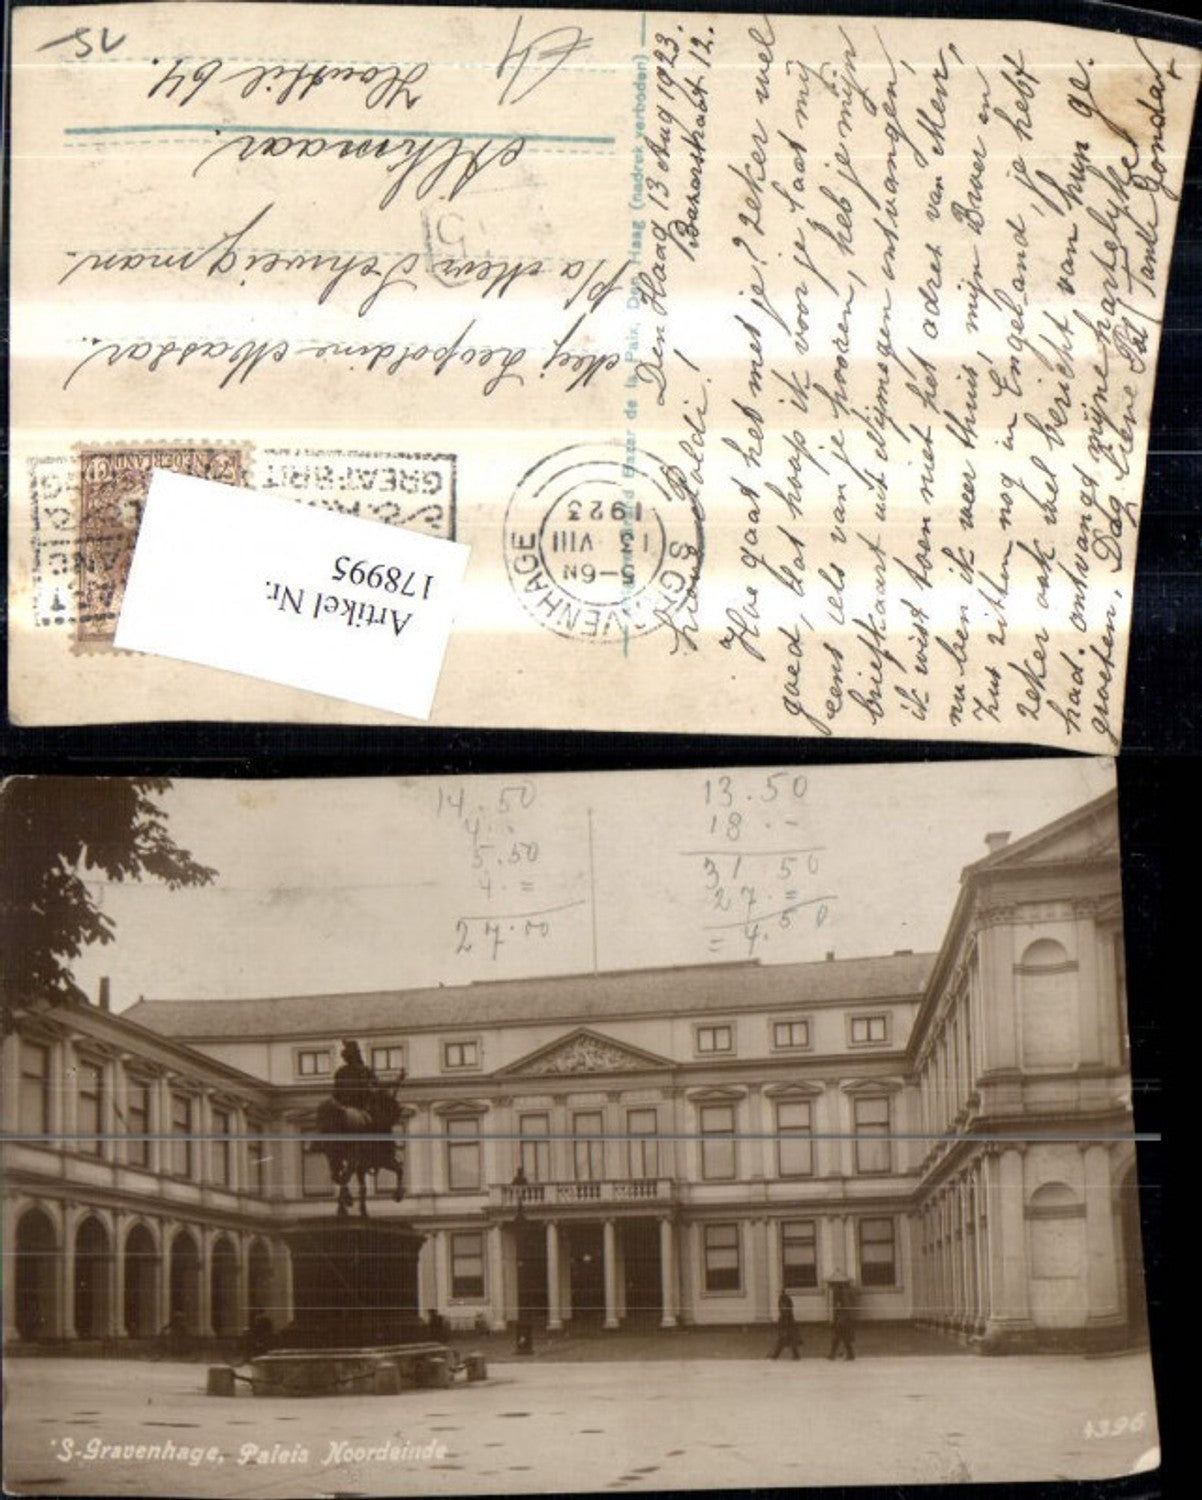 Den Haag 13 Aug 1923.
Bazarstraat 12.
Lieve Poldi!
Hoe gaat het met je? zeker wel
goed, dat hoop ik voor je. Laat mij
eens iets van je hooren, heb je mijn
briefkaart uit Nijmegen ontvangen,
ik wist toen niet het adres van Mevr,
nu ben ik weer thuis, mijn Broer en
Zus zitten nog in Engeland, je hebt
zeker ook wel bericht van hun ge-
had. ontvangt mijne hartelijke
groeten. Dag Lieve Pol Tante
Mej Leopoldine Massar.
p/a Mevr Schweigman.
Alkmaar.
64.
15
(nadruk verboden)
de la Paix, Den Haag
NEDERLAND
GREAT BRIT
'S GRAVENHAGE
5-6N
13 VIII
1923
Artikel Nr.
178995
14.50
4.-
5.50
4.=
27.00
13.50
18.-
31 50
27.=
= 4.50
'S-Gravenhage, Paleis Noordeinde
4396